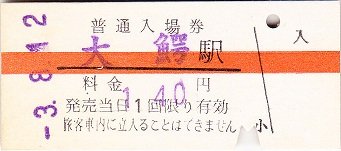 普通入場券
大鰐駅
料金140円
発売当日1回限り有効
旅客車内に立入ることはできません
-3.8.12
入
小